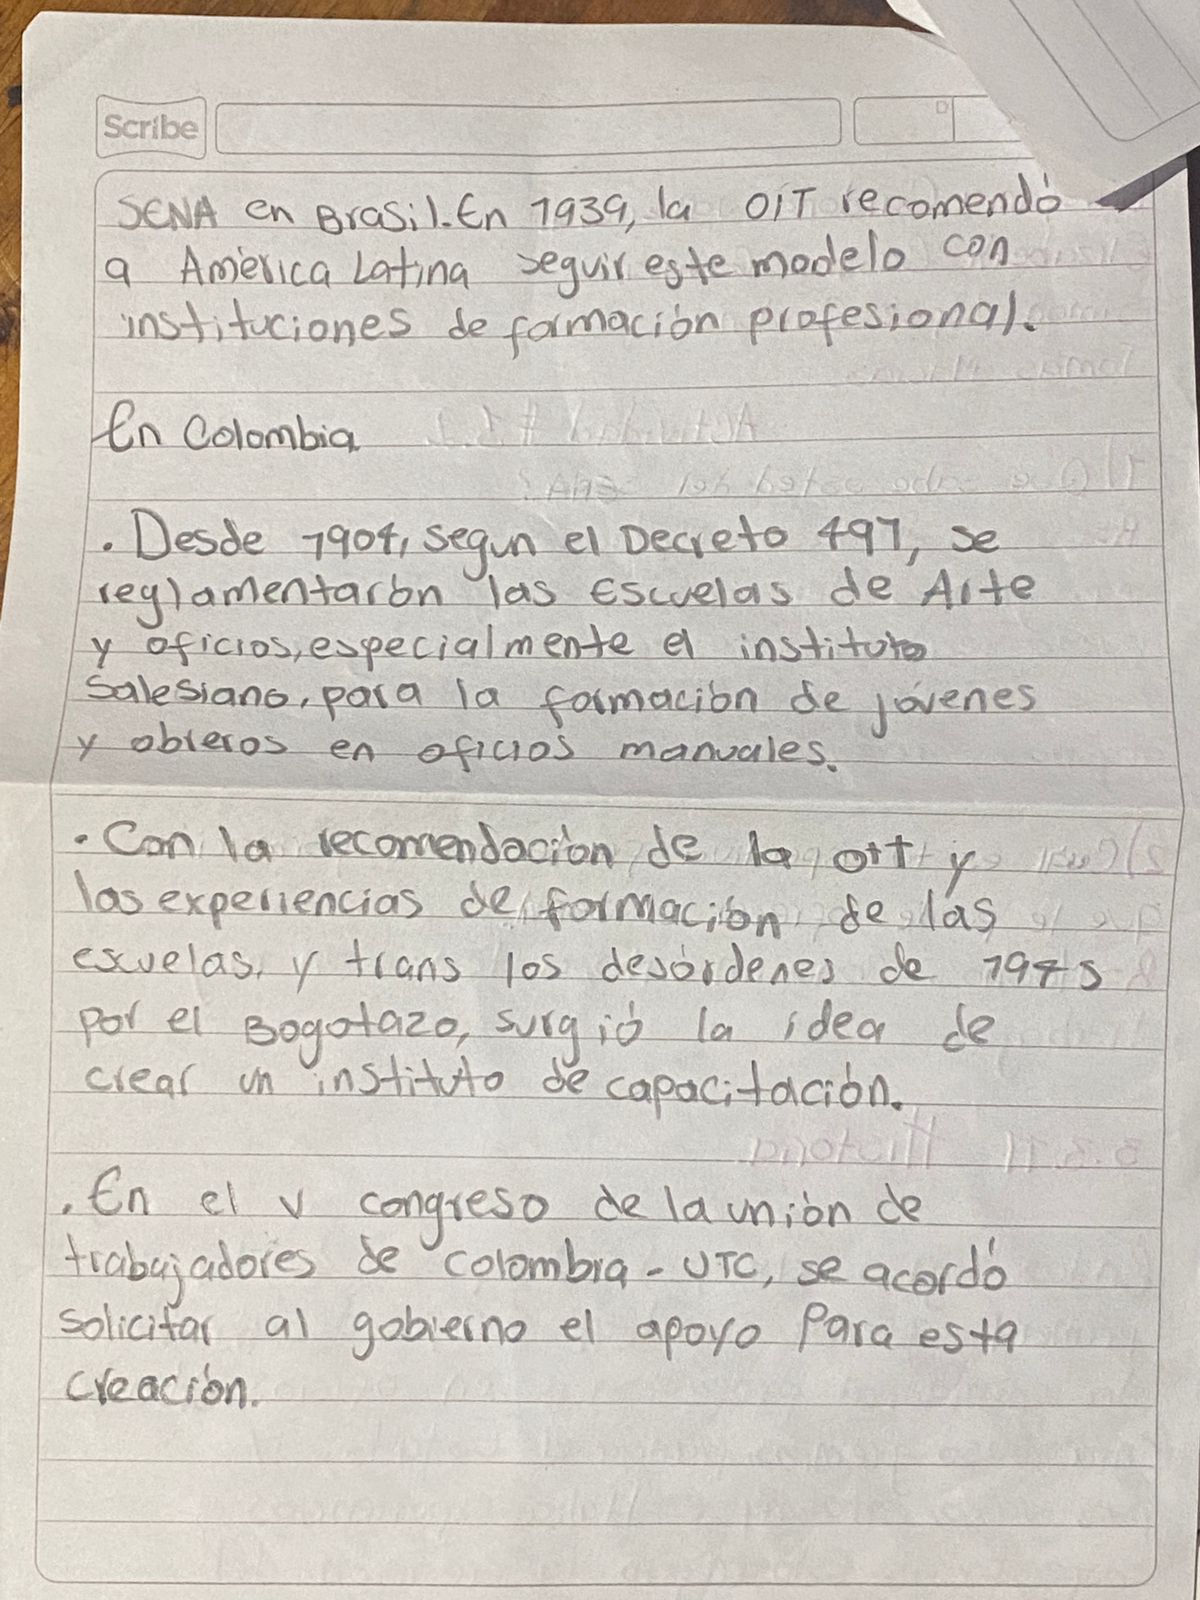 Scribe
D
SENA en Brasil. En 1939, la OIT recomendó
a América Latina seguir este modelo con
instituciones de formación profesional.
En Colombia
. Desde 1904, segun el Decreto 491, se
reglamentarón las Escuelas de Arte
y oficios, especialmente el instituto
Salesiano, para la formación de jóvenes
y obreros en oficios manuales.
. Con la recomendación de la OIT y
las experiencias de formación de las
escuelas, y trans los desórdenes de
por el Bogotazo, surgió la idea de
crear un instituto de capacitación.
. En el V congreso de la unión de
trabajadores de Colombia - UTC, se acordó
solicitar al gobierno el apoyo Para esta
creación.